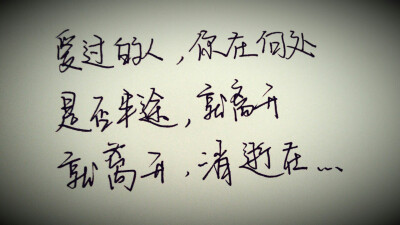 爱过的人，你在何处
是否半途，就离开
就离开，消逝在...